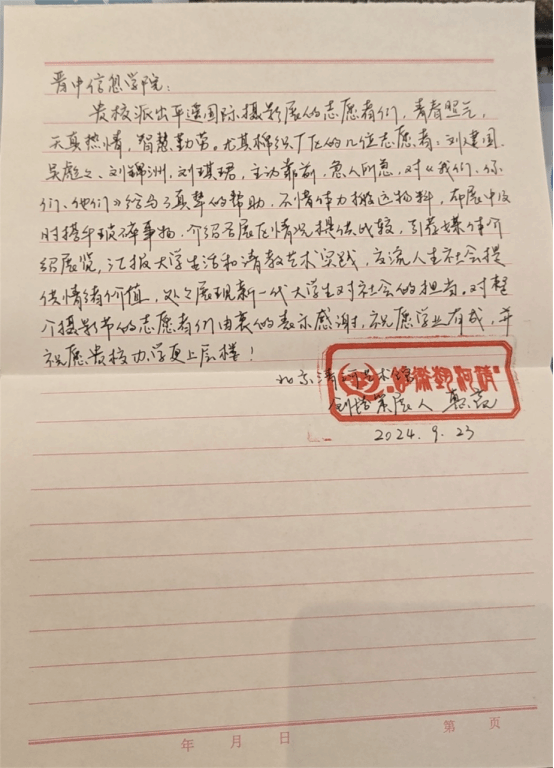 晋中信息学院：
贵校派出平遥国际摄影展的志愿者们，青春照亮，
天真热情，智慧勤劳。尤其棉织厂区的几位志愿者：刘建国、
吴彪之、刘锦洲、刘琪珺，主动靠前，急人所急，对《我们、你
们、他们》给与了真挚的帮助，不惜体力搬运物料，布展中及
时搭手破碎事物，介绍各展区情况提供比较，引荐媒体介
绍展览，汇报大学生活和请教艺术实践，交流人生社会提
供情绪价值，处处展现新一代大学生对社会的担当。对整
个摄影节的志愿者们由衷的表示感谢，祝愿学业有成，并
祝愿贵校办学更上层楼！
北京清河艺术馆
创始策展人
2024.9.23
年 月 日
第 页